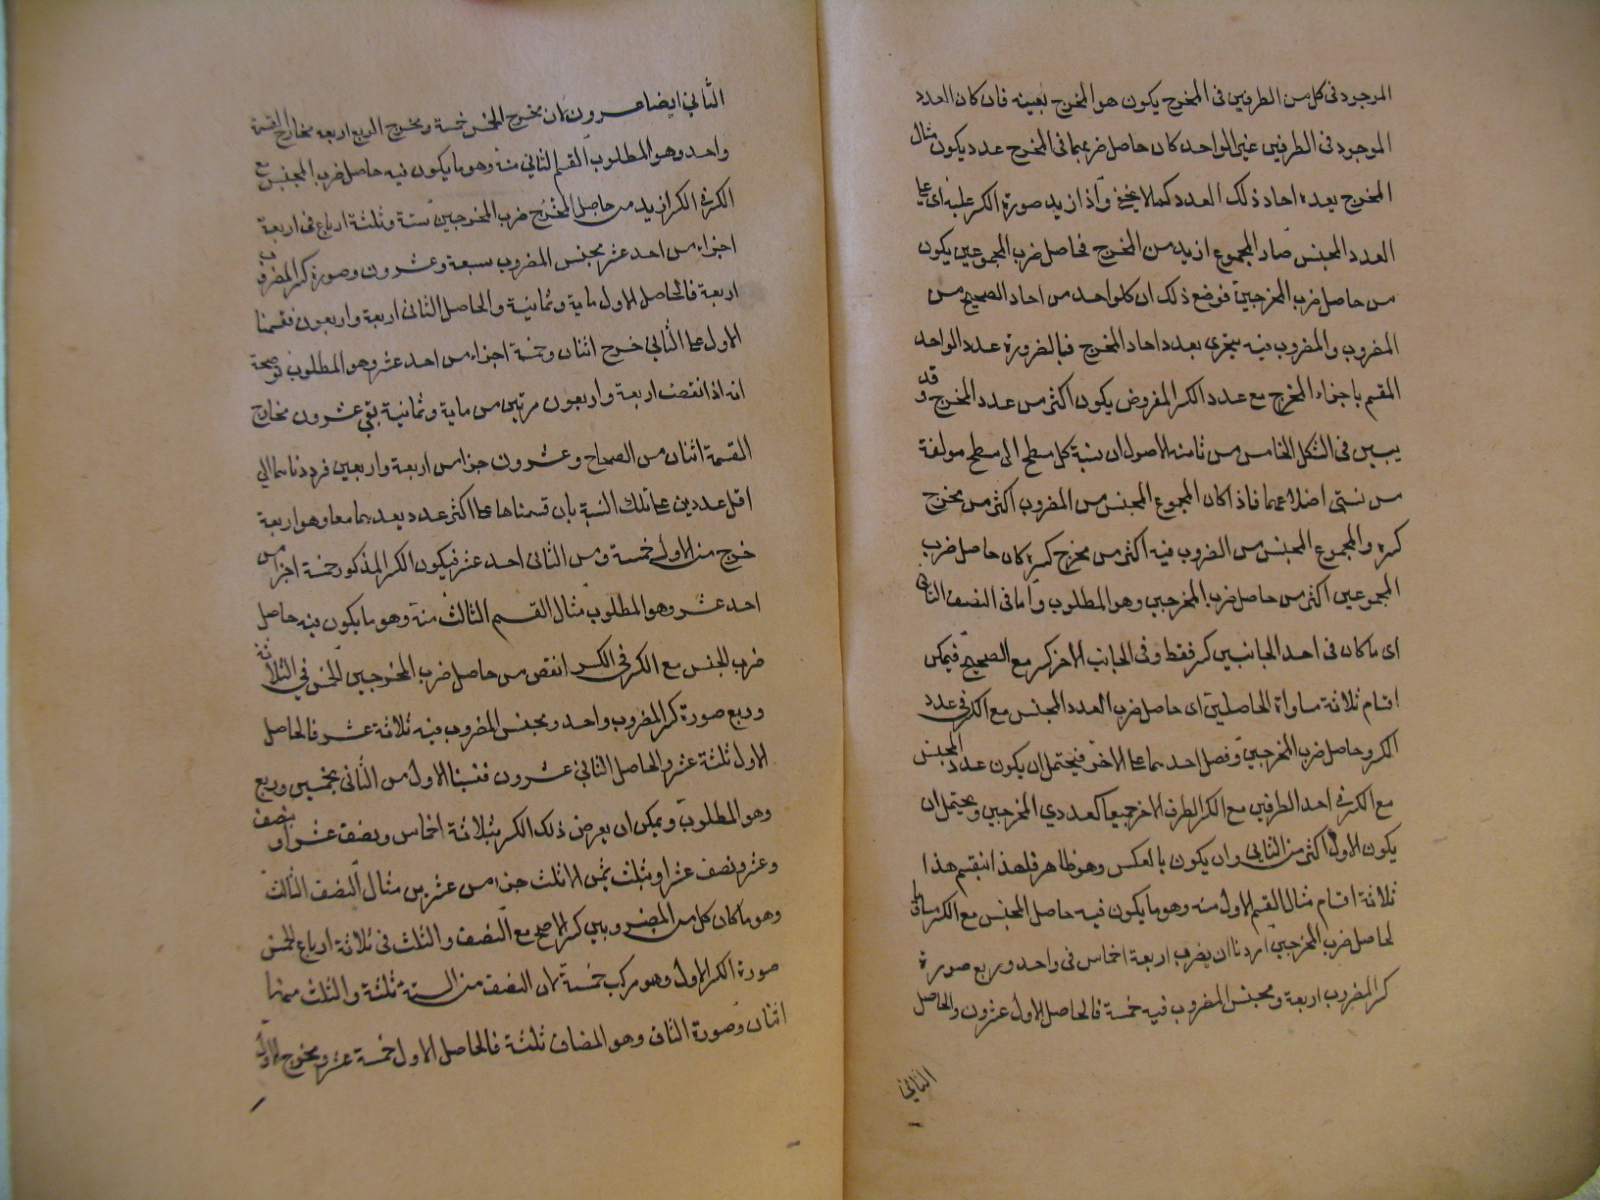 الموجود فى كل من الطرفين فى المخرج يكون هو المخرج بعينه فان كان العدد
الموجود فى الطرفين غير الواحد كان حاصل ضربهما فى المخرج عدد يكون مثال
المخرج بعده احاد ذلك العدد كما لا يخفى واذا زيد صورة الكسر عليه اى على
العدد المجنس صار المجموع ازيد من المخرج فحاصل ضرب المجموعين يكون
من حاصل ضرب المخرجين فوضع ذلك ان كل واحد من احاد الصحيح من
المضروب والمضروب فيه يتجزى بعدد احاد المخرج فبالضرورة عدد الواحد
المقسم باجزاء المخرج مع عدد الكسر المفروض يكون اكثر من عدد المخرج وقد
يبين فى الشكل الخامس من ثامنه الاصول ان نسبة كل مسطح الى مسطح مولفة
من نسبتى اضلاعهما فاذا كان المجموع المجنس من المضروب اكثر من مخرج
كسره والمجموع المجنس من المضروب فيه اكثر من مخرج كسره كان حاصل ضرب
المجموعين اكثر من حاصل ضرب المخرجين وهو المطلوب واما فى النصف الثانى
اى ما كان فى احد الجانبين كسر فقط وفى الجانب الاخر كسر مع الصحيح فيمكن
اقسام ثلاثة مساواة الحاصلين اى حاصل ضرب العدد المجنس مع الكسر فى عدد
الكسر وحاصل ضرب المخرجين وفضل احدهما على الاخر فيحتمل ان يكون عدد المجنس
مع الكسر فى احد الطرفين مع الكسر الطرف الاخر جميعا كعددي المخرجين ويحتمل ان
يكون الاول اكثر من الثانى وان يكون بالعكس وهو ظاهر فلهذا انقسم هذا
ثلاثة اقسام مثال القسم الاول منه وهو ما يكون فيه حاصل المجنس مع الكسر مساويا
لحاصل ضرب المخرجين اردنا ان يضرب اربعة اخماس فى واحد وربع صورة
كسر المضروب اربعة ومجنس المضروب فيه خمسة فالحاصل الاول عشرون والحاصل
الثانى
الثانى ايضا عشرون لان مخرج الخمس خمسة ومخرج الربع اربعة فخارج القسمة
واحد وهو المطلوب القسم الثانى منه وهو ما يكون فيه حاصل ضرب المجنس مع
الكسر فى الكسر ازيد من حاصل ضرب المخرجين ستة وثلثة ارباع فى اربعة
اجزاء من احد عشر مجنس المضروب سبعة وعشرون وصورة كسر المضروب
اربعة فالحاصل الاول ماية وثمانية والحاصل الثانى اربعة واربعون فقسمنا
الاول على الثانى خرج اثنان وخمسة اجزاء من احد عشر وهو المطلوب توضيحه
انه اذا نقصت اربعة واربعون مرتين من ماية وثمانية بقى عشرون فخارج
القسمة اثنان من الصحاح وعشرون جزا من اربعة واربعين فرددناهما الى
اقل عددين على تلك النسبة بان قسمناها على اكثر عدد يعدهما معا وهو اربعة
خرج من الاول خمسة ومن الثانى احد عشر فيكون الكسر المذكور خمسة اجزا من
احد عشر وهو المطلوب مثال القسم الثالث منه وهو ما يكون فيه حاصل
ضرب المجنس مع الكسر فى الكسر انقص من حاصل ضرب المخرجين الخمس فى الثلاثة
وربع صورة كسر المضروب واحد ومجنس المضروب فيه ثلاثة عشر فالحاصل
الاول ثلثة عشر والحاصل الثانى عشرون فنسبنا الاول من الثانى بخمسين وربع
وهو المطلوب ويمكن ان يعرض ذلك الكسر بثلاثة اخماس ونصف عشر او بنصف
وعشر ونصف عشر او بثلث ثمن الا ثلث جزء من عشرين مثال النصف الثالث
وهو ما كان كل من المضروبين كسر الاصح مع النصف والثلث فى ثلاثة ارباع الخمس
صورة الكسر الاول وهو مركب خمسة لان النصف من الستة ثلثة والثلث منها
اثنان وصورة الثانى وهو المضاف ثلثة فالحاصل الاول خمسة عشر ومخرج الاول